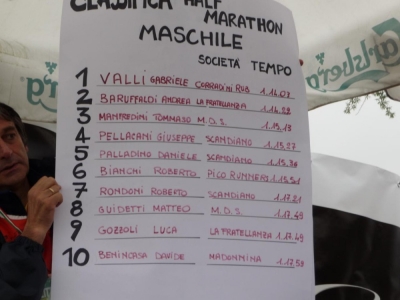 CLASSIFICA HALF
MARATHON
MASCHILE
SOCIETÁ TEMPO
1 VALLI GABRIELE CORRADINI RUB 1.14.07
2 BARUFFALDI ANDREA LA FRATELLANZA 1.14.28
3 MANFREDINI TOMMASO M.D.S. 1.15.13
4 PELLACANI GIUSEPPE SCANDIANO 1.15.27
5 PALLADINO DANIELE SCANDIANO 1.15.38
6 BIANCHI ROBERTO PICO RUNNERS 1.15.51
7 RONDONI ROBERTO SCANDIANO 1.17.21
8 GUIDETTI MATTEO M.D.S. 1.17.49
9 GOZZOLI LUCA LA FRATELLANZA 1.17.49
10 BENINCASA DAVIDE MADONNINA 1.17.58
Carlsberg